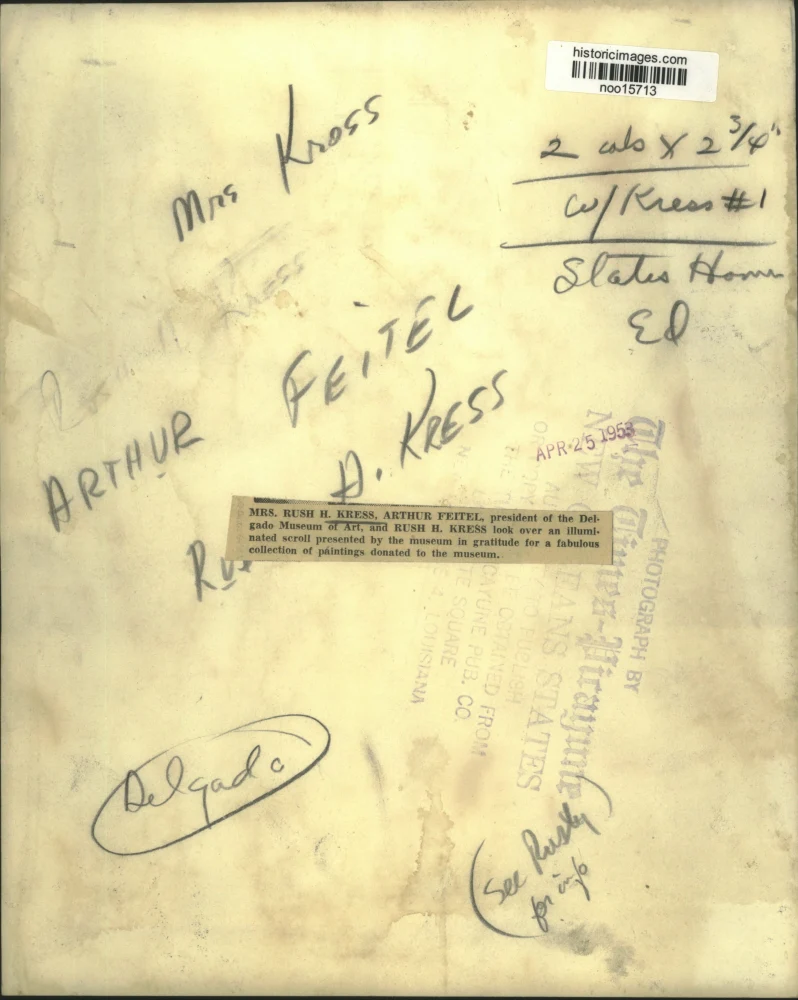 historicimages.com
noo15713
Mrs Kross
2 cols X 2 3/4"
w/Kress #1
States Home
Ed
Kress
ARTHUR FEITEL
A. KRESS
APR 25 1953
MRS. RUSH H. KRESS, ARTHUR FEITEL, president of the Del-
gado Museum of Art, and RUSH H. KRESS look over an illumi-
nated scroll presented by the museum in gratitude for a fabulous
collection of paintings donated to the museum.
PHOTOGRAPH BY
The Times-Picayune
NEW ORLEANS STATES
TO PUBLISH
OBTAINED FROM
PICAYUNE PUB. CO.
SQUARE
LOUISIANA
Delgado
(See Rusty
for info)